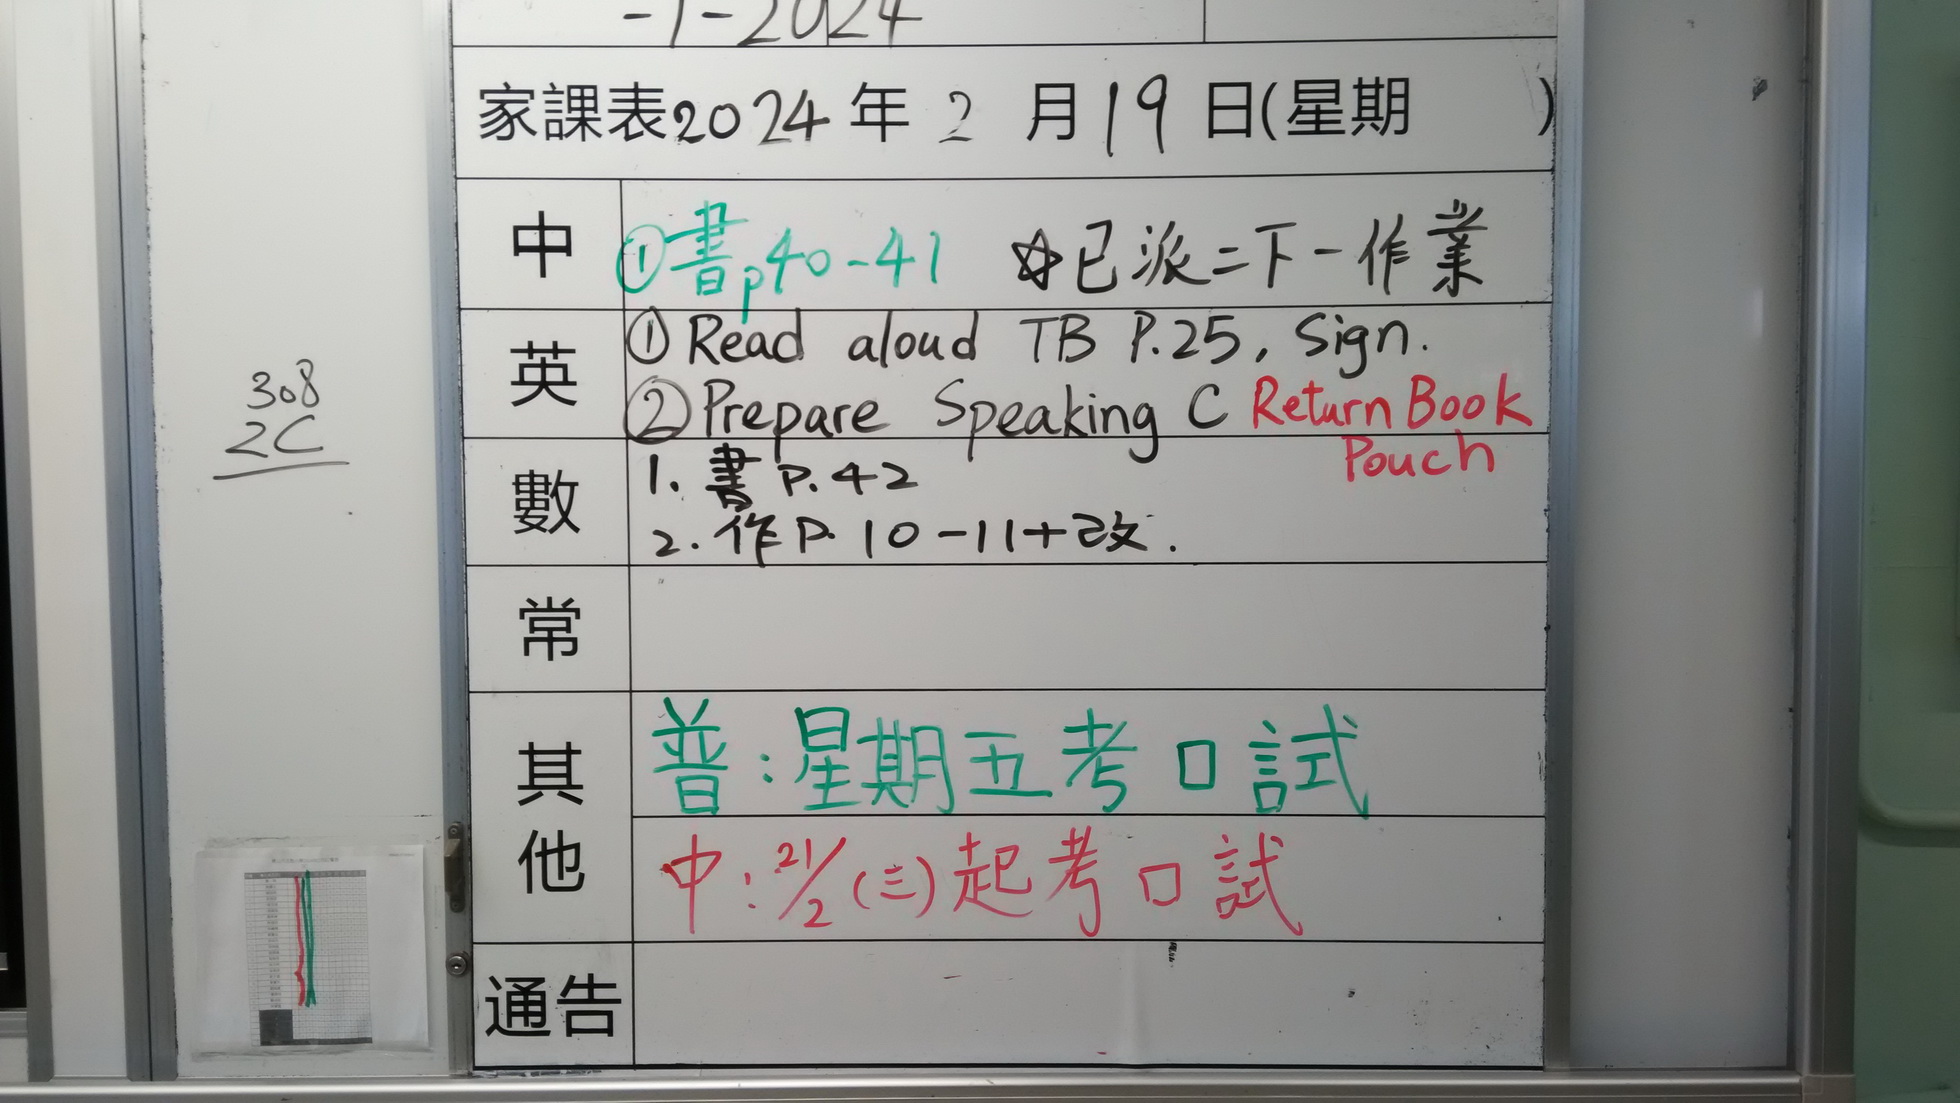 -1-2024
家課表2024年2月19日(星期 )
中 ①書p40-41 ☆已派二下一作業
英 ①Read aloud TB P.25, Sign.
②Prepare Speaking C Return Book
Pouch
數 1. 書 P.42
2. 作P. 10-11+改.
常
其他 普:星期五考口試
中:21/2(三)起考口試
通告
308
2C